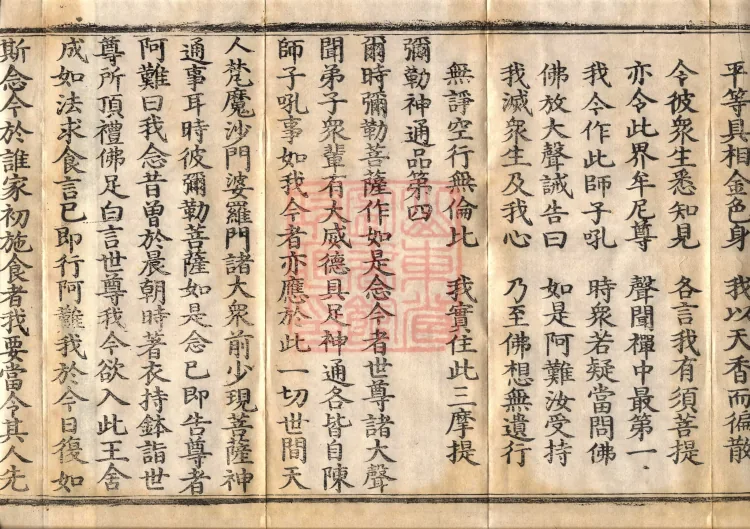 平等真相金色身　我以天香而徧散
令彼衆生悉知見　各言我有須菩提
亦令此界牟尼尊　聲聞禪中最第一
我今作此師子吼　時衆若疑當問佛
佛放大聲誡告曰　如是阿難汝受持
我滅衆生及我心　乃至佛想無遺行
無諍空行無倫比　我實住此三摩提
彌勒神通品第四
爾時彌勒菩薩作如是念今者世尊諸大聲
聞弟子衆輩有大威德具足神通各皆自陳
師子吼事如我今者亦應於此一切世間天
人梵魔沙門婆羅門諸大衆前少現菩薩神
通事耳時彼彌勒菩薩如是念已即告尊者
阿難曰我念昔曾於晨朝時著衣持鉢詣世
尊所頂禮佛足白言世尊我今欲入此王舍
成如法求食言已即行阿難我於今日復如
斯念今於誰家初施食者我要當令其人先